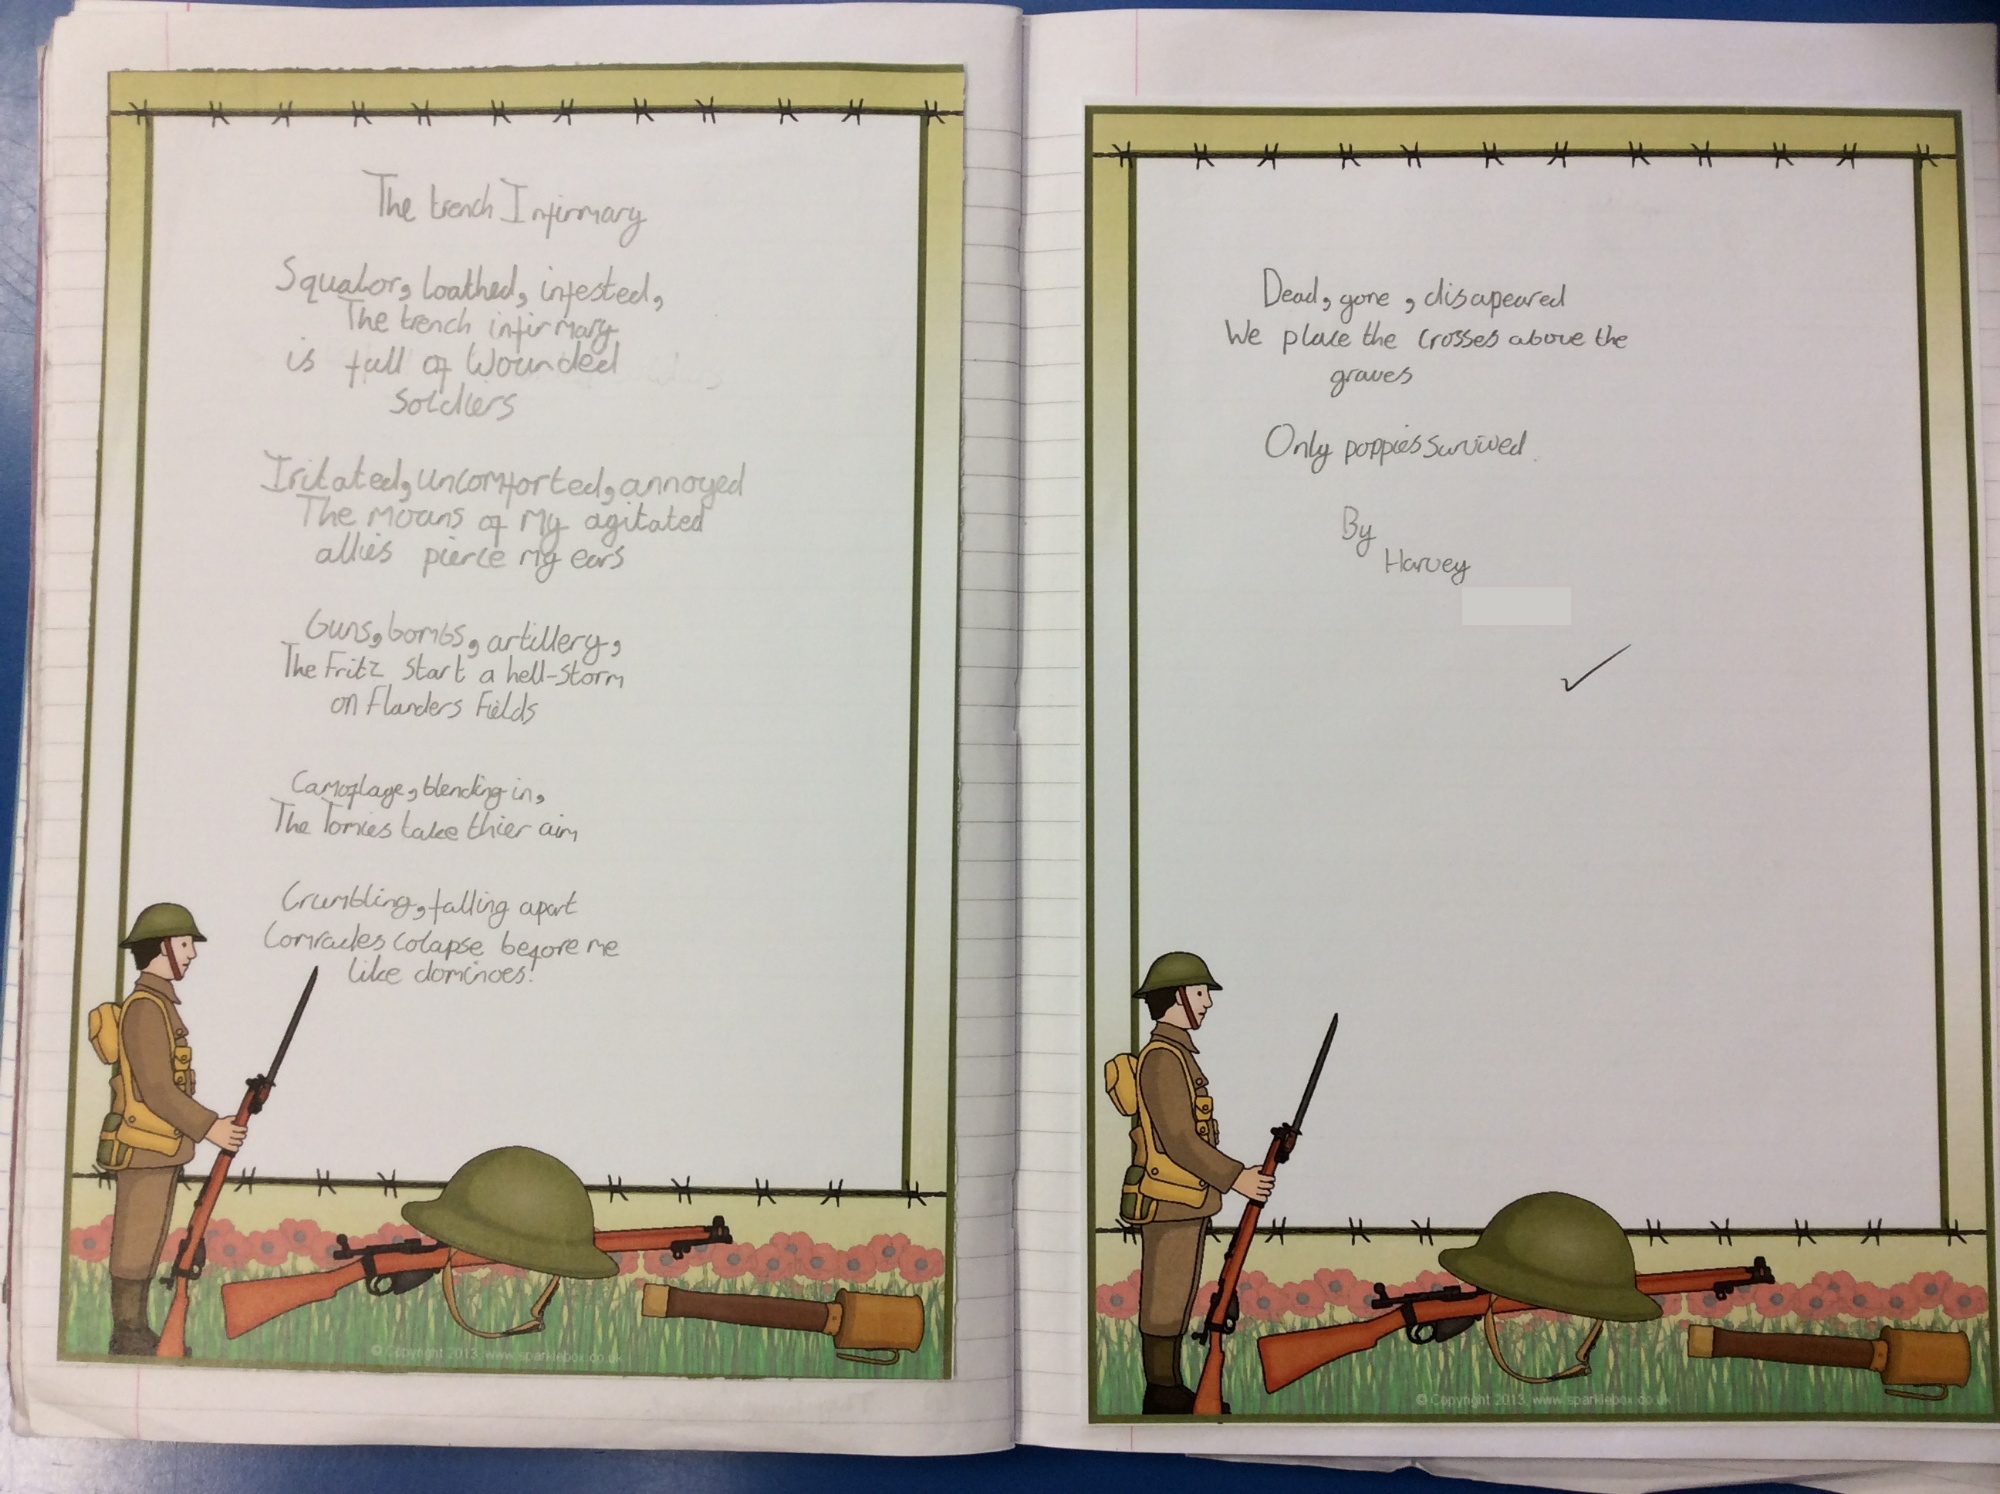 The trench Infirmary
Squalor, loathed, infested,
The trench infirmary
is full of Wounded
Soldiers
Iritated, uncomforted, annoyed
The moans of my agitated
allies pierce my ears
Guns, bombs, artillery,
The Fritz Start a hell-storm
on Flanders Fields
Camoflage, blending in,
The Tomies take thier aim
Crumbling, falling apart
Comrades colapse before me
like dominoes!
© Copyright 2013, www.sparklebox.co.uk
Dead, gone, disapeared
We place the Crosses above the
graves
Only poppies survived.
By
Harvey
© Copyright 2013, www.sparklebox.co.uk